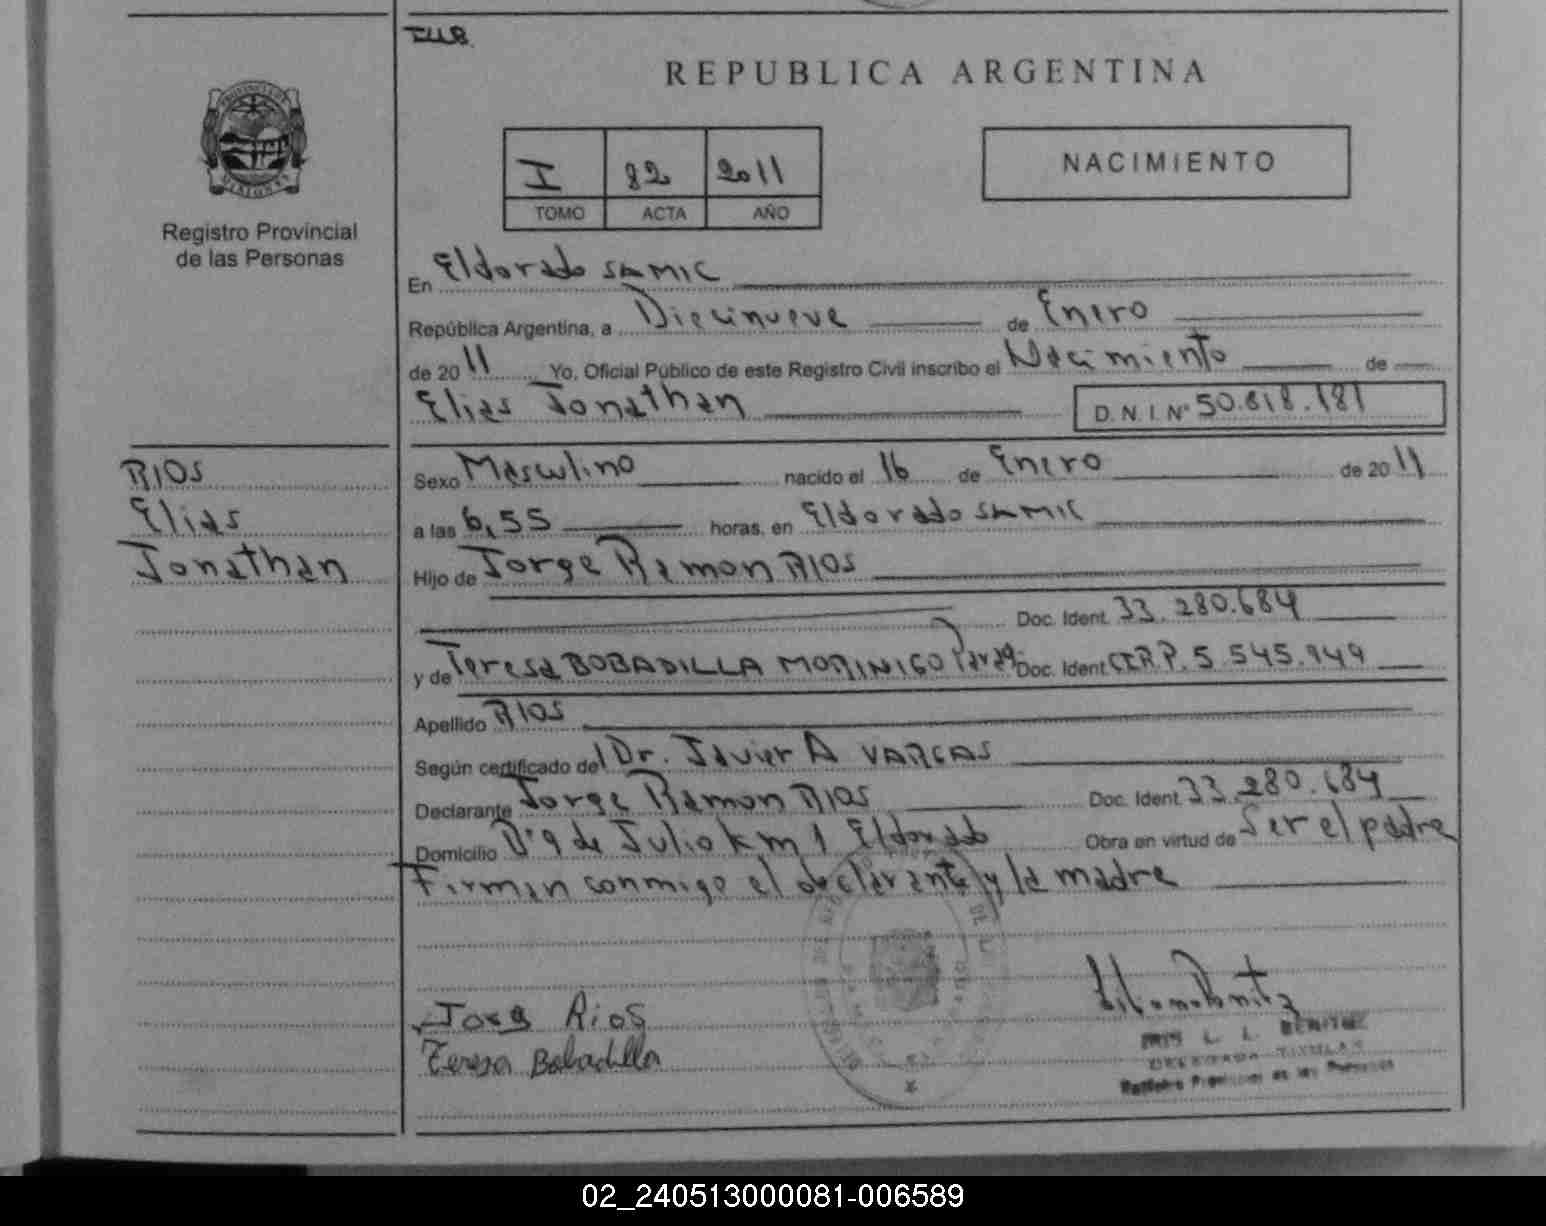 REPUBLICA ARGENTINA
I 82 2011
TOMO ACTA AÑO
NACIMIENTO
Registro Provincial
de las Personas
En Eldorado SAMIC
República Argentina, a Diecinueve de Enero
de 2011 Yo, Oficial Público de este Registro Civil inscribo el Nacimiento de
Elias Jonathan D.N.I. Nº 50.818.181
RIOS
Elias
Jonathan
Sexo Masculino nacido el 16 de Enero de 2011
a las 6,55 horas, en Eldorado SAMIC
Hijo de Jorge Ramon RIOS
Doc. Ident. 33.280.684
y de Teresa BOBADILLA MORINIGO Parag. Doc. Ident CI RP. 5.545.949
Apellido RIOS
Según certificado del Dr. Javier A VARGAS
Declarante Jorge Ramon RIOS Doc. Ident. 33.280.684
Domicilio Bº 9 de Julio km 1 Eldorado Obra en virtud de Ser el padre
Firman conmigo el declarante y la madre
Jorg Rios
Teresa Bobadilla
IRIS L. L. BENITEZ
DELEGADA TITULAR
Registro Provincial de las Personas
02_240513000081-006589